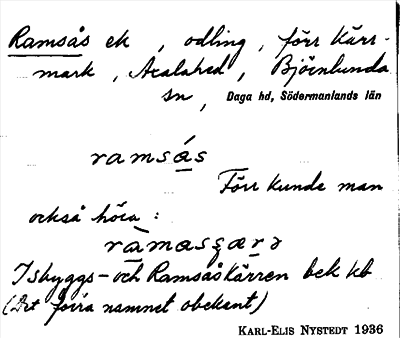 Ramsås ek, odling, förr kärr-
mark, Axalahed, Björnlunda
sn, Daga hd, Södermanlands län
ramsás
Förr kunde man
också höra:
Isbyggs- och Ramsåskärren bek kb
(Det förra namnet obekant)
KARL-ELIS NYSTEDT 1936